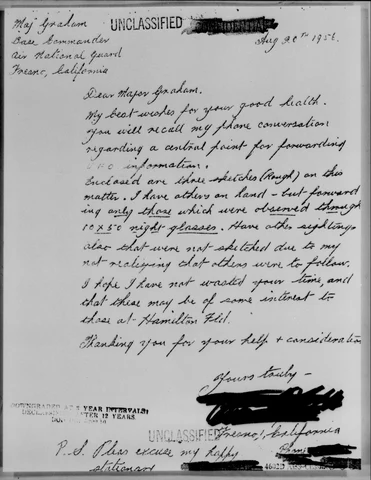 Maj Graham
Base Commander
Air National Guard
Fresno, California
UNCLASSIFIED
Aug 20th 1956
Dear Major Graham.
My best wishes for your good health.
You will recall my phone conversation
regarding a central point for forwarding
information.
Enclosed are those sketches (Rough) on this
matter. I have others on hand - but forward
ing only those which were observed through
10 x 50 night glasses. Have other sightings
also that were not sketched due to my
not realizing that others were to follow.
I hope I have not wasted your time, and
that these may be of some interest to
those at Hamilton Fld.
Thanking you for your help + consideration
Yours truly -
DOWNGRADED AT 3 YEAR INTERVALS;
DECLASSIFIED AFTER 12 YEARS.
UNCLASSIFIED
Fresno, California
P.S. Pleas excuse my
stationary